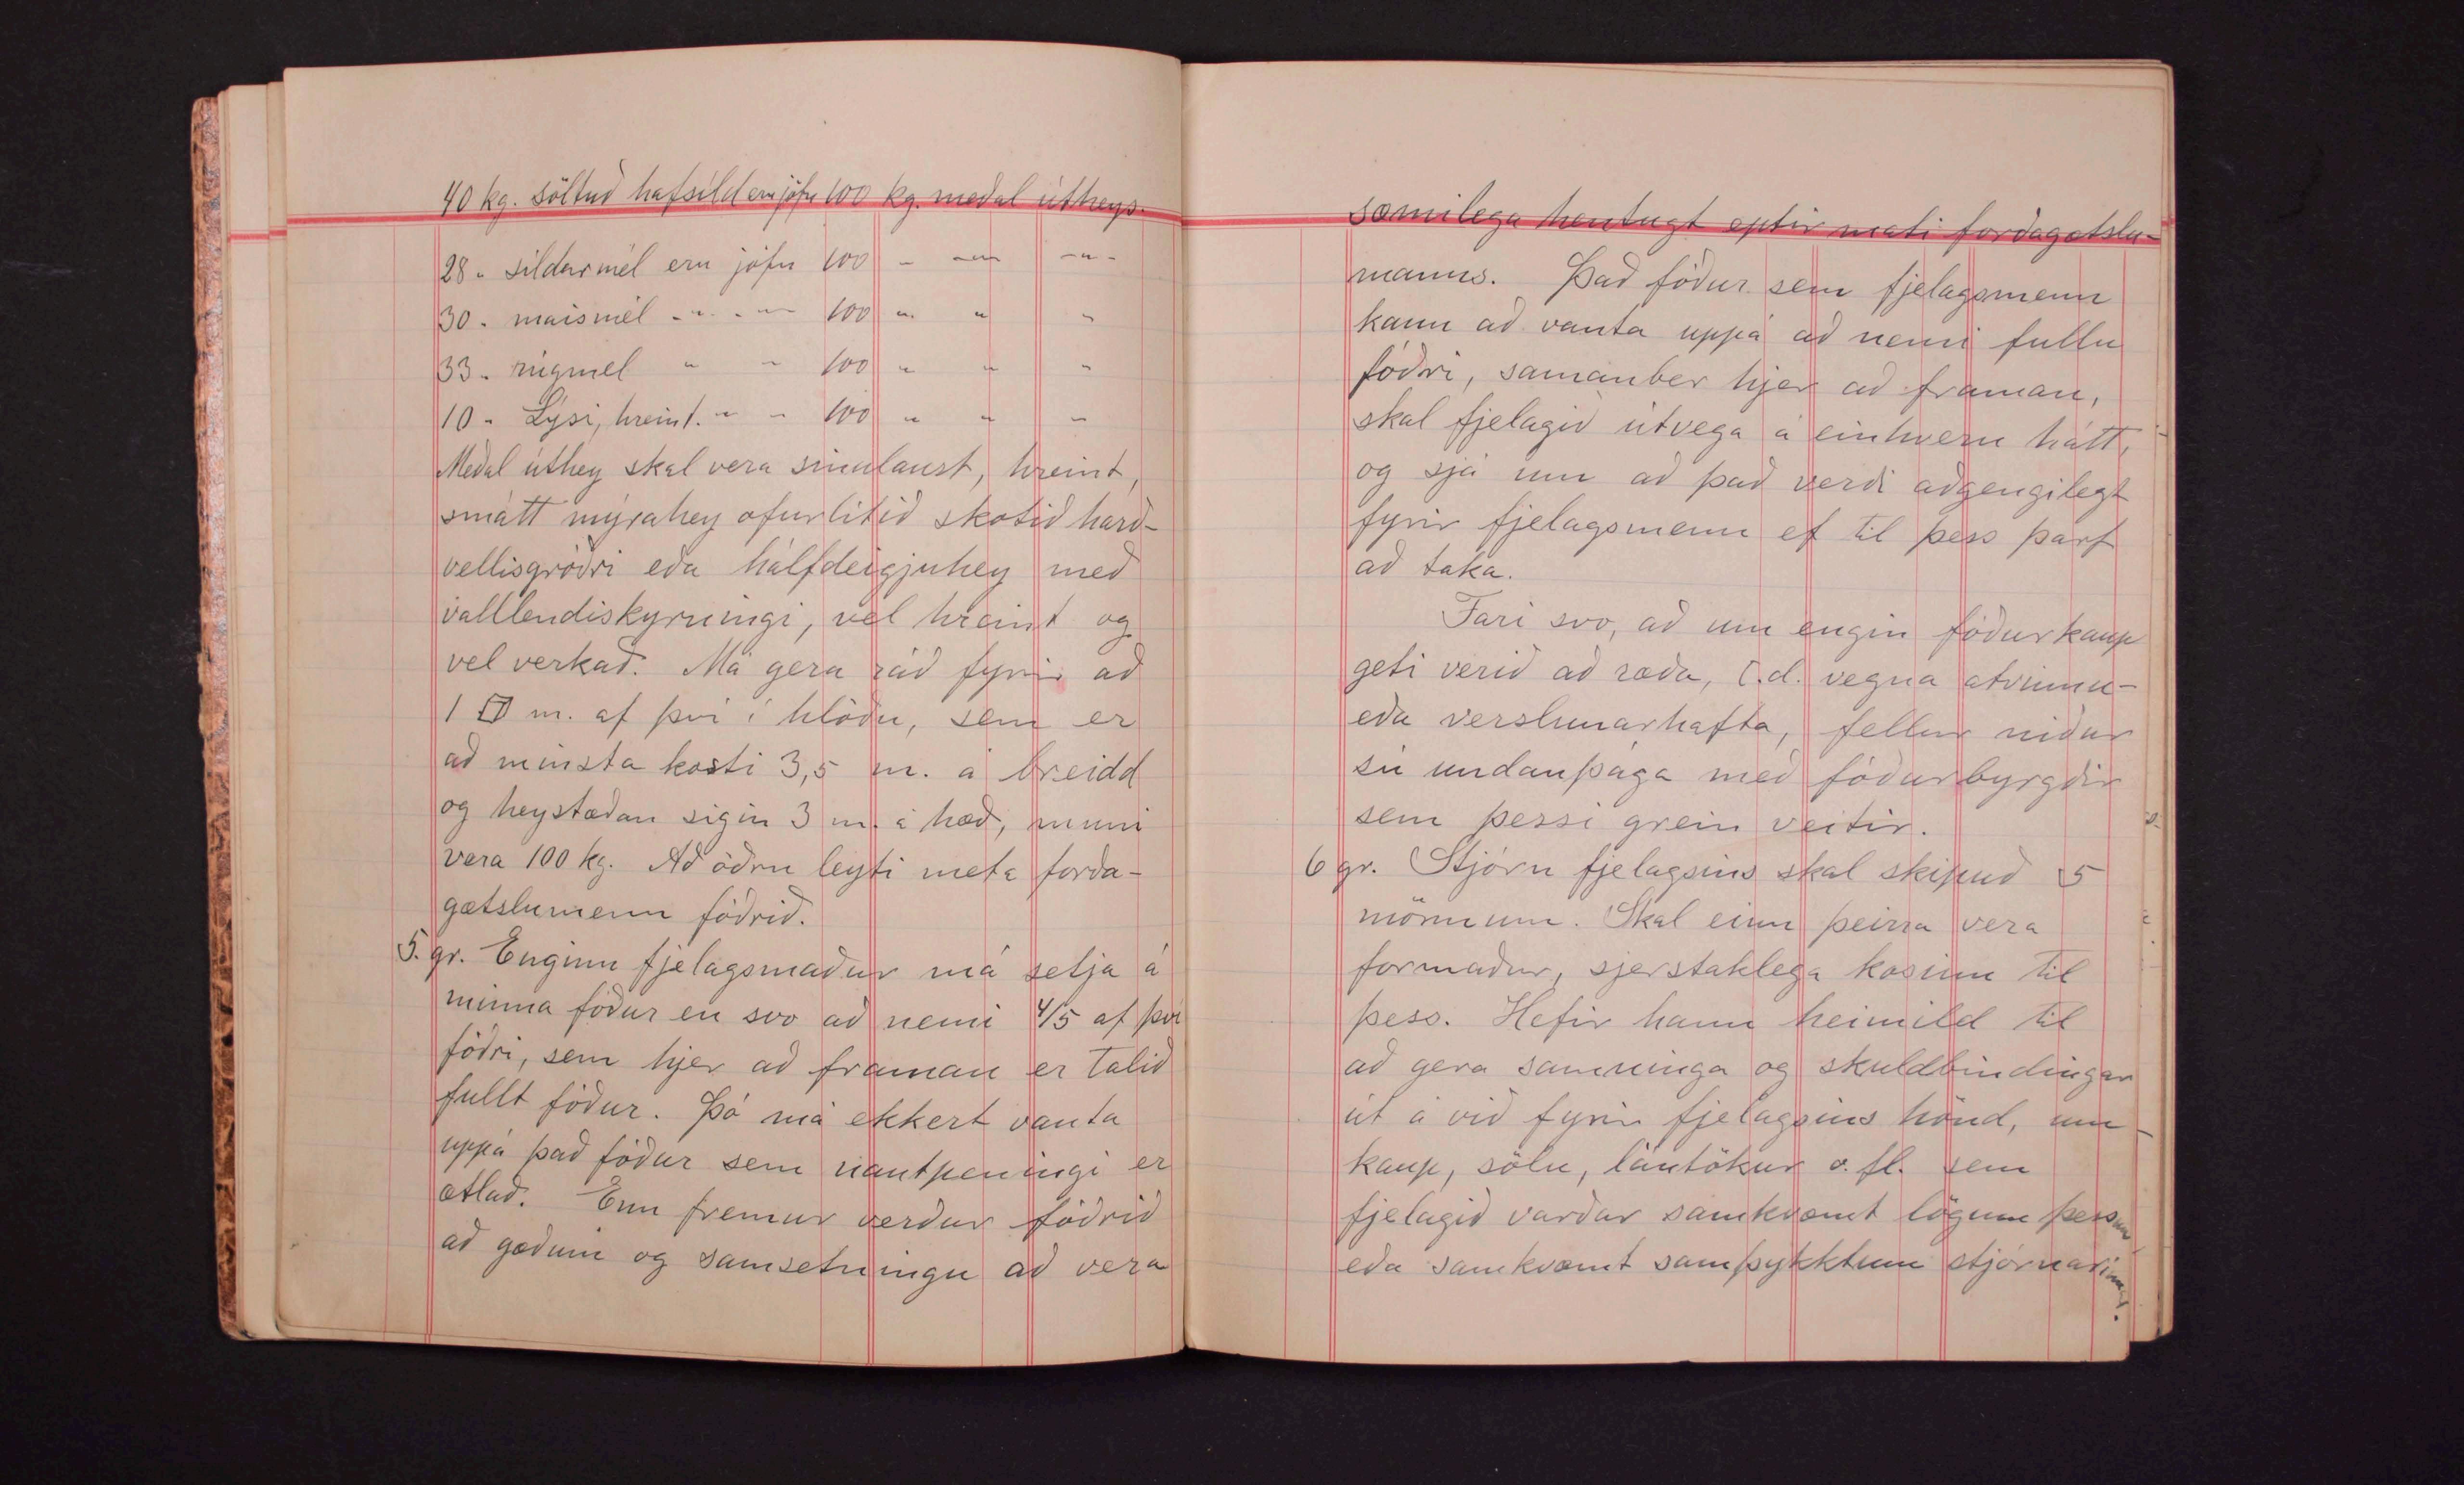 40 kg. söltuð hafsíld eru jöfn 100 kg. meðal útheys.
28 " síldarmél eru jöfn 100 - -"- -"-
30 - maismél -"- -"- 100 " " "
33 - rúgmél " " 100 " " "
10 - Lýsi, hreint. " " 100 " " "
Meðal úthey skal vera sinulaust, hreint,
smátt mýrahey ofurlitið skotið harð-
vellisgróðri eða hálfdeigjuhey með
valllendiskyrningi, vel hreint og
vel verkað. Má gera ráð fyrir að
1 □ m. af því í hlöðu, sem er
að minsta kosti 3,5 m. á breidd
og heystæðan sigin 3 m. á hæð, muni
vera 100 kg. Að öðru leyti meta forða-
gætslumenn fóðrið.
5. gr. Enginn fjelagsmaður má setja á
minna fóður en svo að nemi 4/5 af því
fóðri, sem hjer að framan er talið
fullt fóður. Þó má ekkert vanta
uppá það fóður sem nautpeningi er
ætlað. Enn fremur verður fóðrið
að gæðum og samsetningu að vera
sæmilega hentugt eptir mati forðagætslu-
manns. Það fóður sem fjelagsmenn
kann að vanta uppá að nemi fullu
fóðri, samanber hjer að framan,
skal fjelagið útvega á einhvern hátt,
og sjá um að það verði aðgengilegt
fyrir fjelagsmenn ef til þess þarf
að taka.
Fari svo, að um engin fóðurkaup
geti verið að ræða, t.d. vegna atvinnu-
eða verslunarhafta, fellur niður
sú undanþága með fóðurbyrgðir
sem þessi grein veitir.
6 gr. Stjórn fjelagsins skal skipuð 5
mönnum. Skal einn þeirra vera
formaður, sjerstaklega kosinn til
þess. Hefir hann heimild til
að gera samninga og skuldbindingar
út á við fyrir fjelagsins hönd, um
kaup, sölu, lántökur o.fl. sem
fjelagið varðar samkvæmt lögum þessum
eða samkvæmt samþykktum stjórnarinnar.